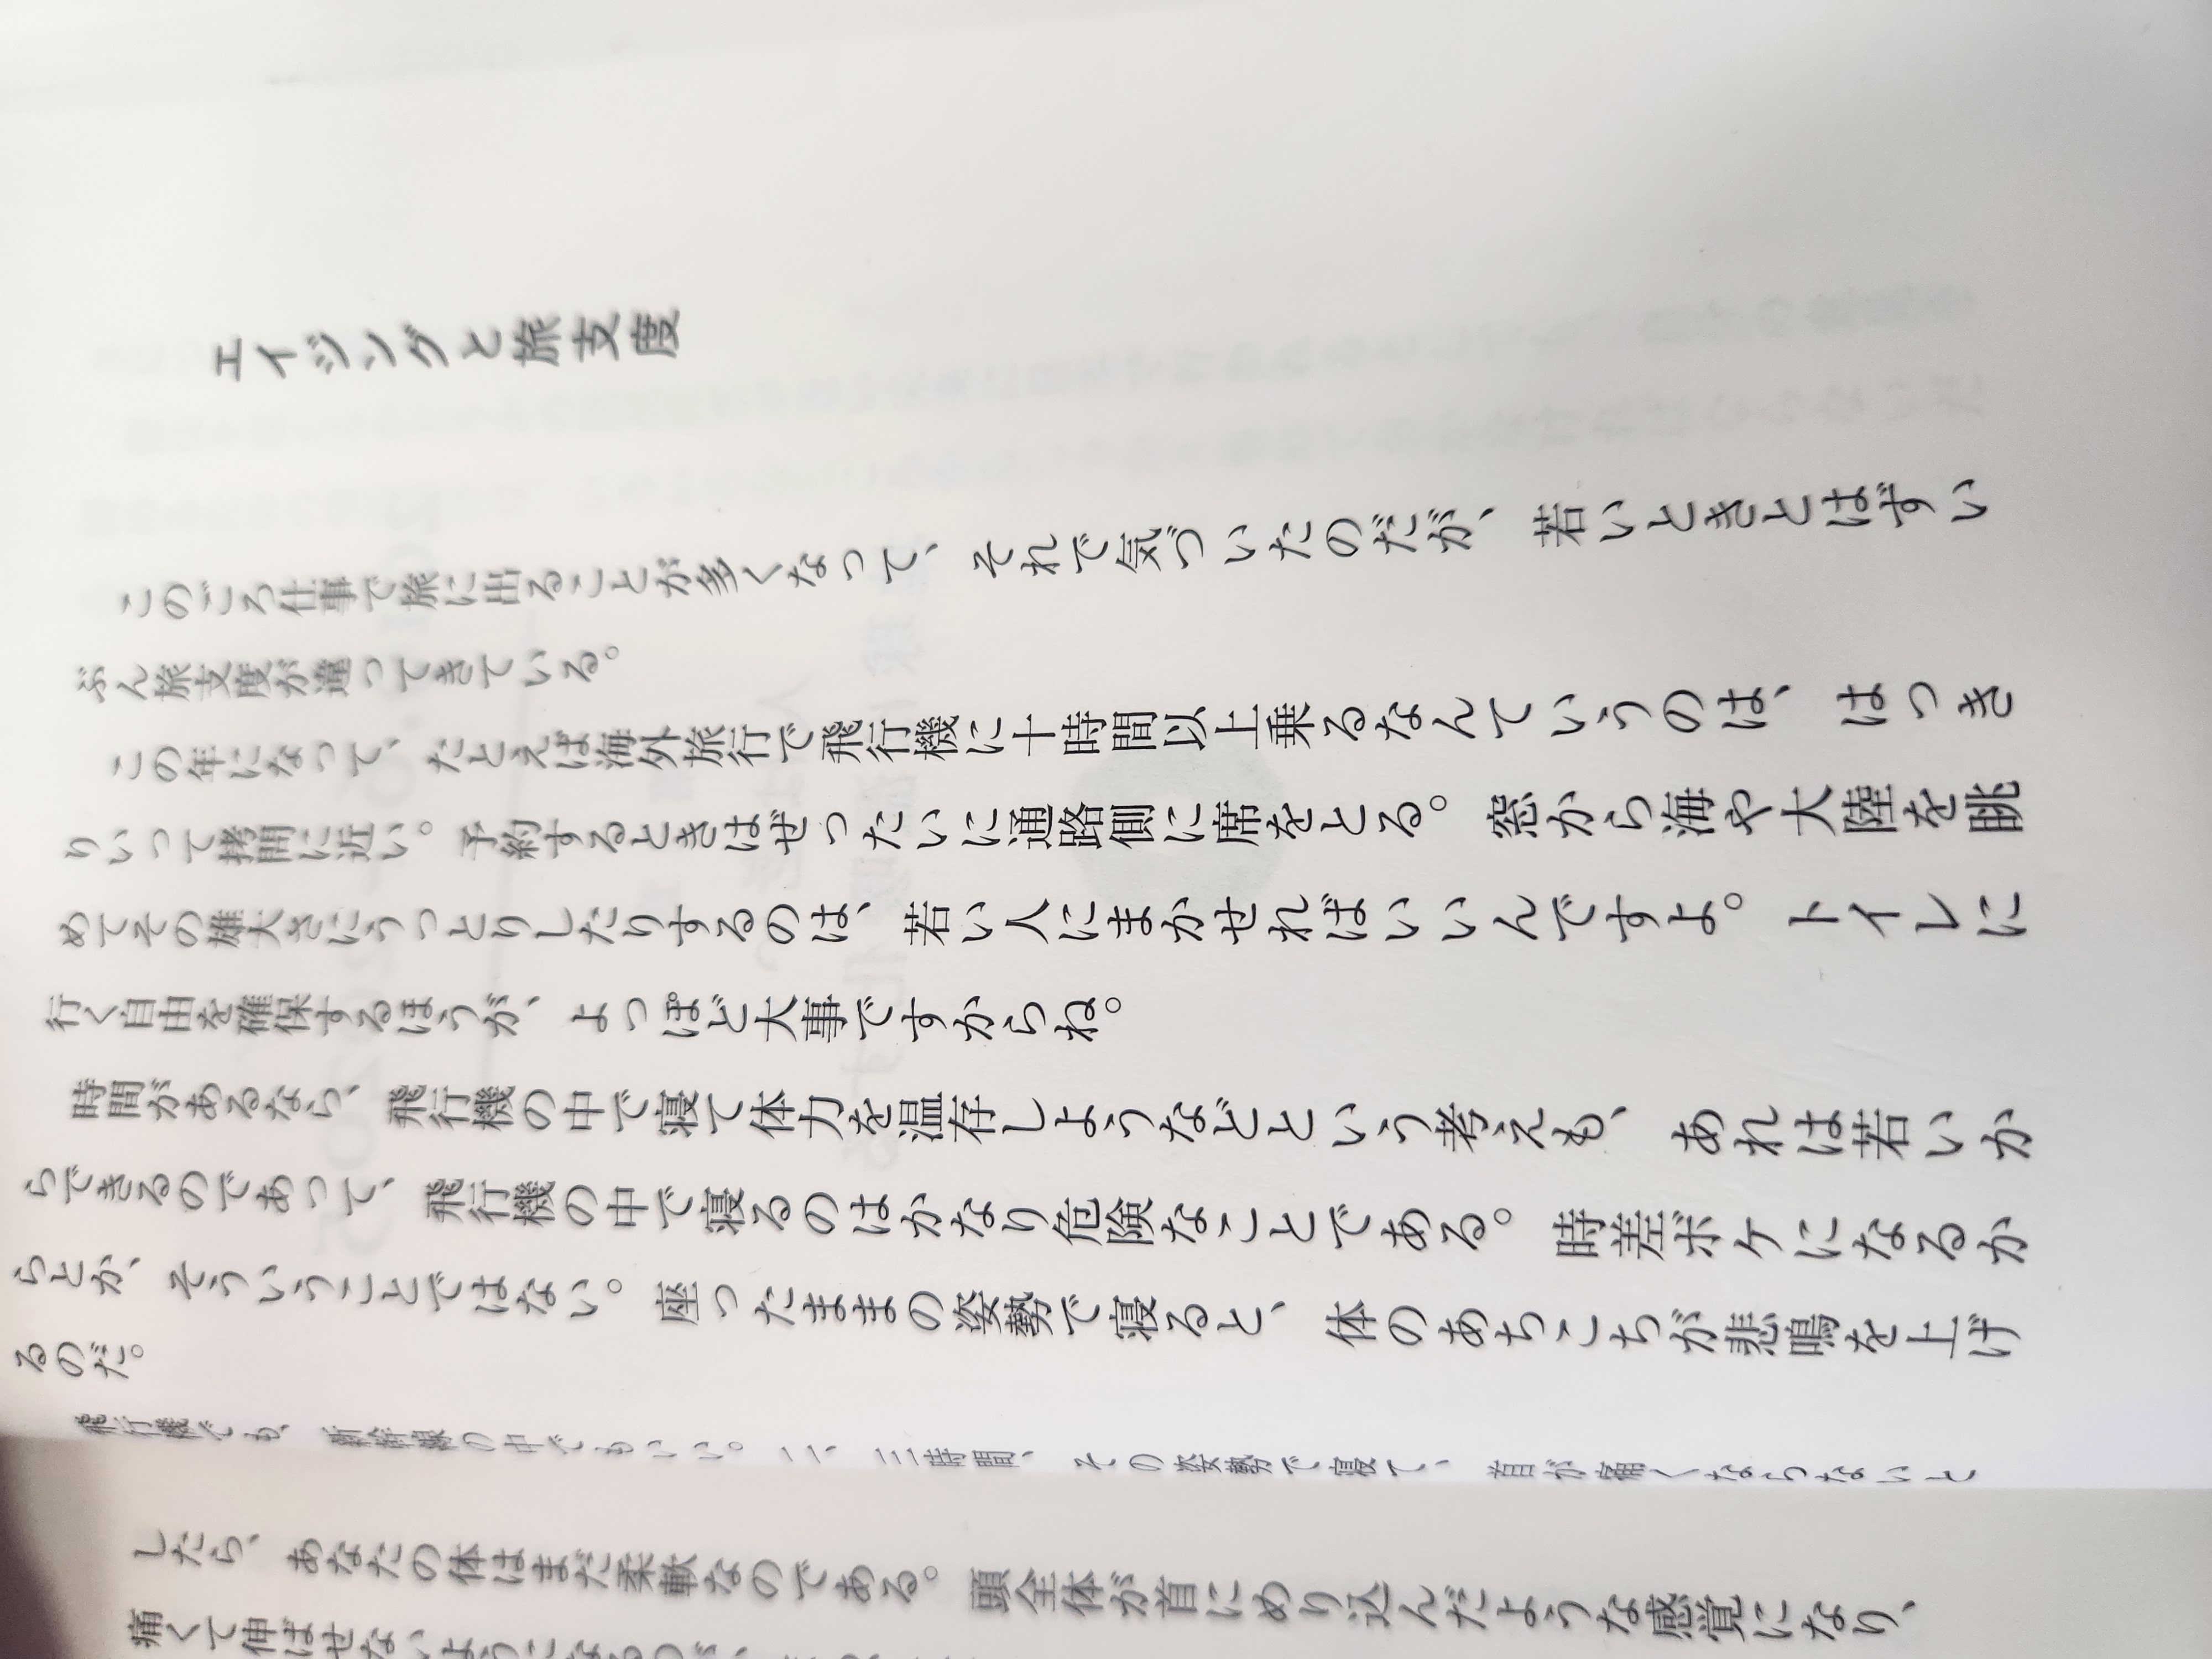 エイジングと旅支度
このごろ仕事で旅に出ることが多くなって、それで気づいたのだが、若いときとはずい
ぶん旅支度が違ってきている。
この年になって、たとえば海外旅行で飛行機に十時間以上乗るなんていうのは、はっき
りいって拷問に近い。予約するときはぜったいに通路側に席をとる。窓から海や大陸を眺
めてその雄大さにうっとりしたりするのは、若い人にまかせればいいんですよ。トイレに
行く自由を確保するほうが、よっぽど大事ですからね。
時間があるなら、飛行機の中で寝て体力を温存しようなどという考えも、あれは若いか
らできるのであって、飛行機の中で寝るのはかなり危険なことである。時差ボケになるか
らとか、そういうことではない。座ったままの姿勢で寝ると、体のあちこちが悲鳴を上げ
るのだ。
飛行機でも、新幹線の中でもいい。二、三時間、その姿勢で寝て、首が痛くならないと
したら、あなたの体はまだ柔軟なのである。頭全体が首にめり込んだような感覚になり、
痛くて伸ばせないようになる